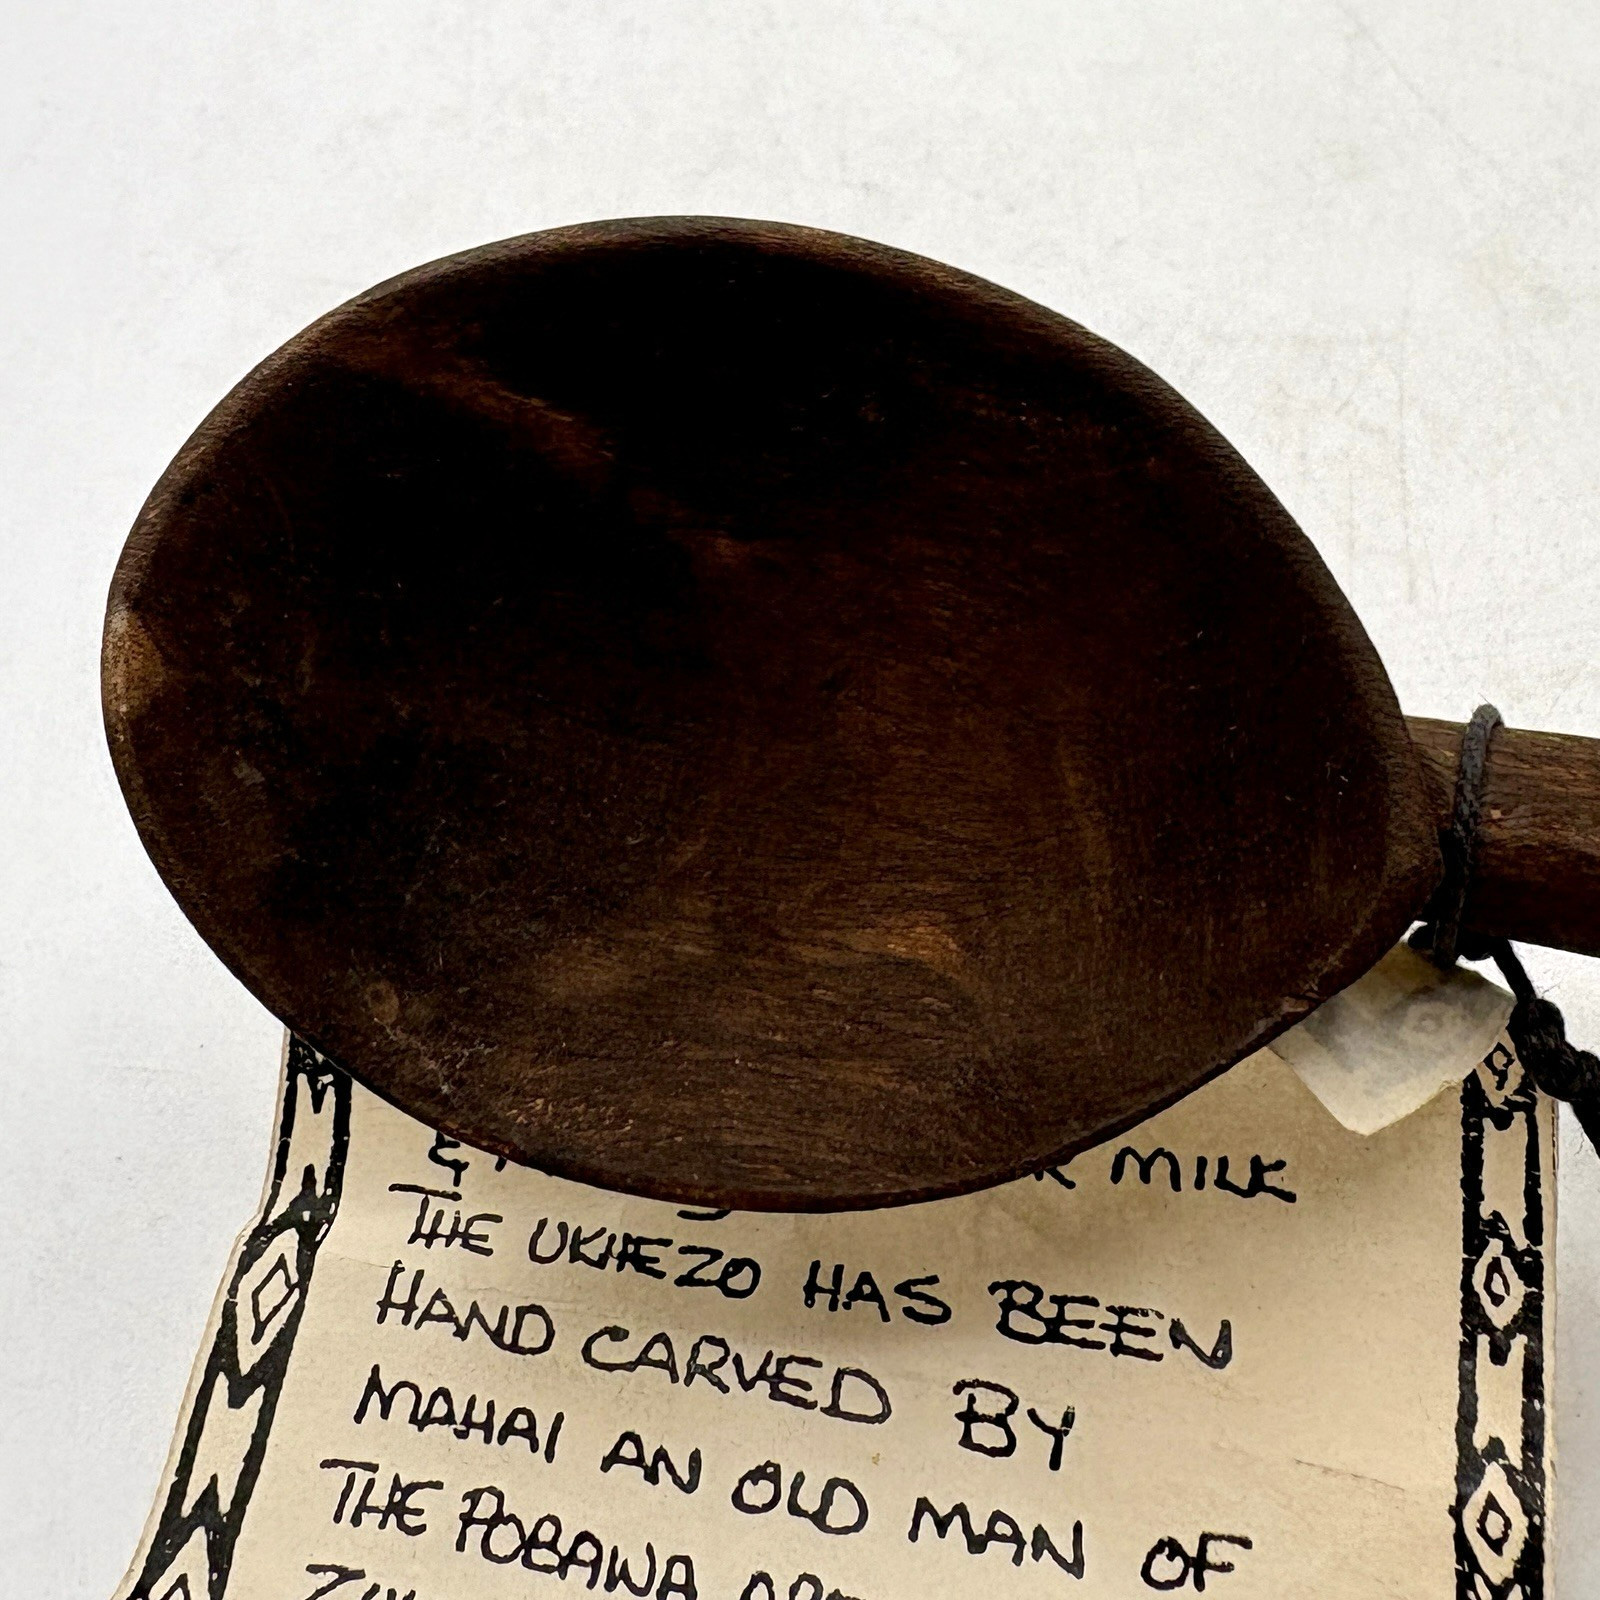 & MILK
THE UKHEZO HAS BEEN
HAND CARVED BY
MAHAI AN OLD MAN OF
THE POBANA